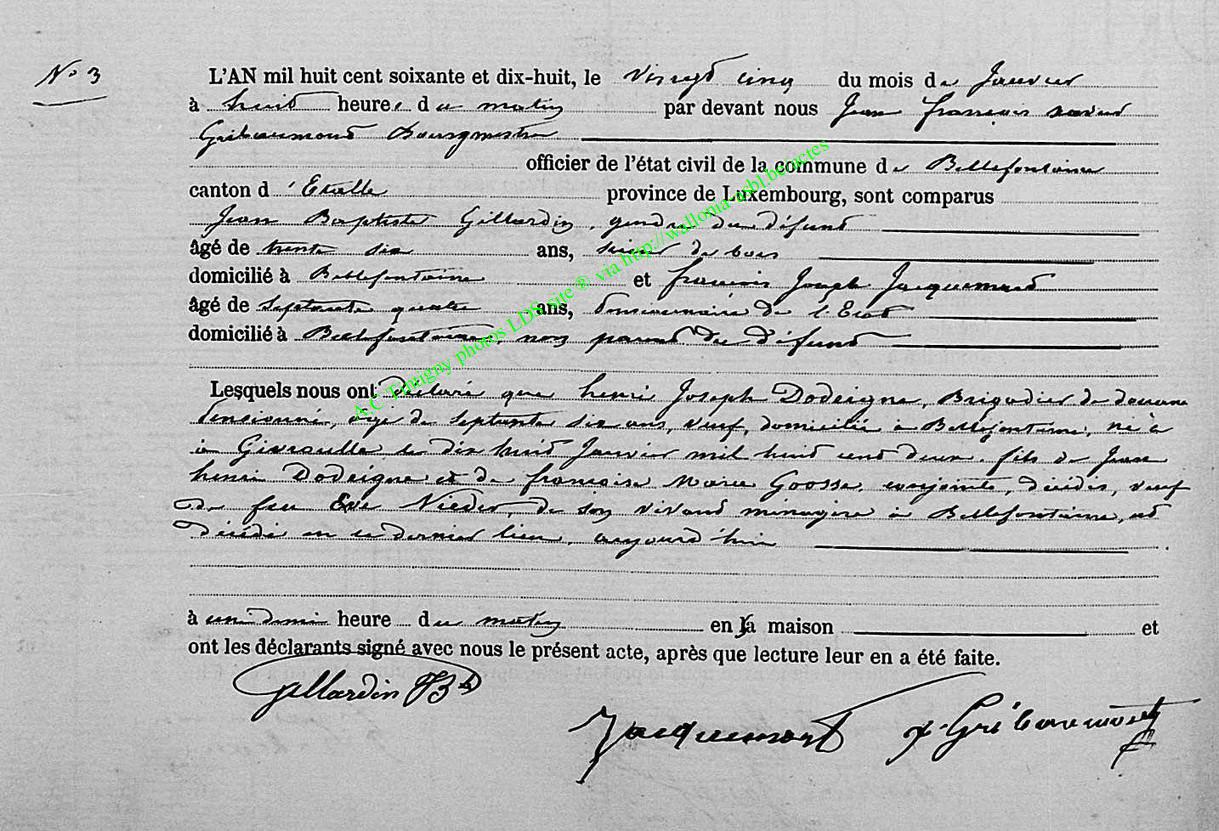 N° 3
L'AN mil huit cent soixante et dix-huit, le vingt cinq du mois de Janvier
à huit heures du matin par devant nous Jean françois xavier
Gribaumont Bourgmestre
officier de l'état civil de la commune de Bellefontaine
canton d'Etalle province de Luxembourg, sont comparus
Jean Baptiste Gillardin, gendre du défunt
âgé de trente six ans, scieur de bois
domicilié à Bellefontaine et françois Joseph Jacquemart
âgé de septante quatre ans, pensionnaire de l'Etat
domicilié à Bellefontaine, non parent du défunt
Lesquels nous ont déclaré que henri Joseph Dodeigne, Brigadier de douane
pensionné, âgé de septante six ans, veuf, domicilié à Bellefontaine, né à
à le dix huit Janvier mil huit cent deux, fils de Jean
henri Dodeigne et de françoise Marie Goosse, conjoints, décédés, veuf
de feu Eve Nieder, de son vivant ménagère à Bellefontaine, est
décédé en ce dernier lieu, aujourd'hui
à une demi heure du matin en sa maison et
ont les déclarants signé avec nous le présent acte, après que lecture leur en a été faite.
Gillardin JBte
Jacquemart x. Gribaumont
A.C. Tintigny photos LDS site ® via http://wallonia-asbl.be/actes